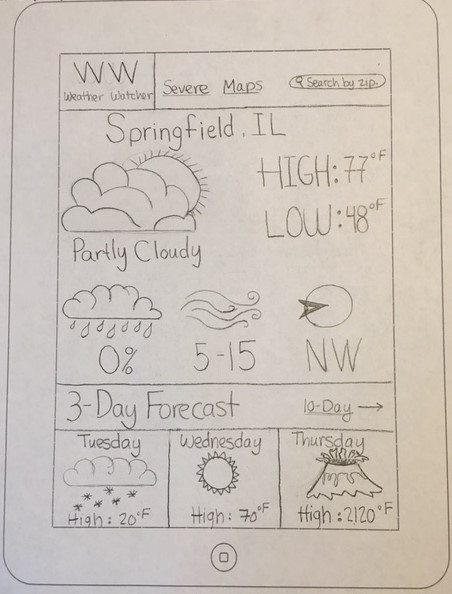 WW
Weather Watcher
Severe Maps
Search by zip.
Springfield, IL
HIGH: 77°F
LOW: 48°F
Partly Cloudy
0% 5-15 NW
3-Day Forecast 10-Day →
Tuesday Wednesday Thursday
High: 20°F High: 70°F High: 2120°F